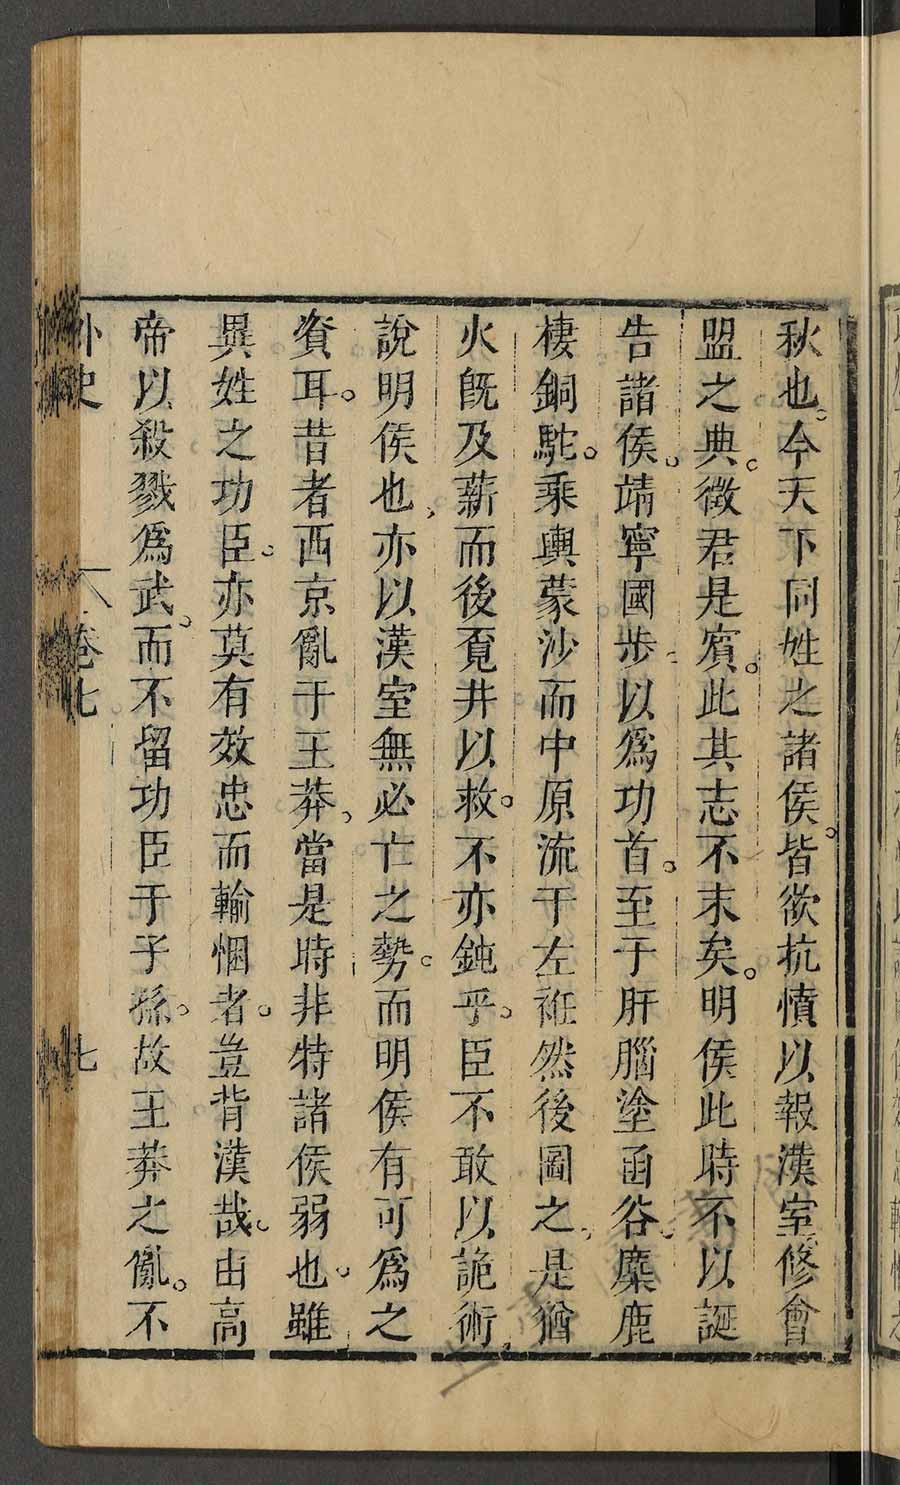 秋也。今天下同姓之諸侯。皆欲抗憤以報漢室。修會
盟之典。徵君是賓。此其志不末矣。明侯此時不以誕
告諸侯。靖寧國步。以爲功首。至于肝腦塗函谷。麋鹿
棲銅駝。乘輿蒙沙而中原流于左袵然後圖之。是猶
火旣及薪而後覔井以救。不亦鈍乎。臣不敢以詭術
說明侯也、亦以漢室無必亡之勢。而明侯有可爲之
資耳。昔者西京亂于王莽、當是時非特諸侯弱也。雖
異姓之功臣。亦莫有效忠而輸悃者。豈背漢哉。由高
帝以殺戮爲武。而不留功臣于子孫。故王莽之亂。不
外史 卷七 七